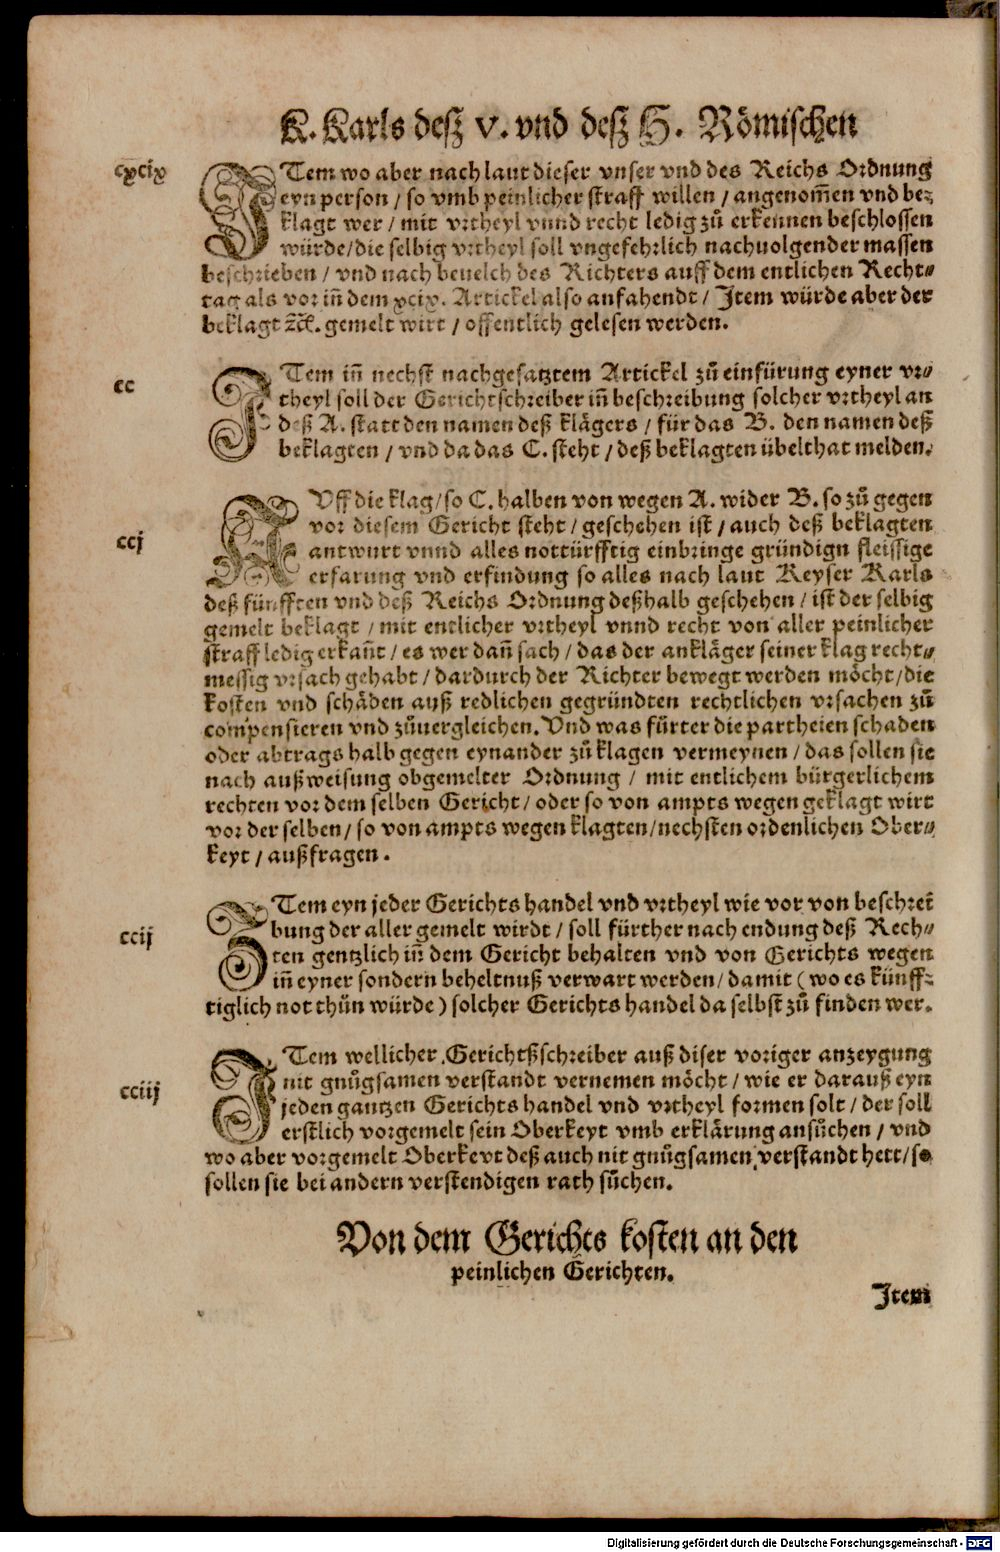 K. Karls desz V. vnd desz H. Römischen
cxcix
ITem wo aber nach laut dieser vnser vnd des Reichs Ordnung
eyn person / so vmb peinlicher straff willen / angenom̃en vnd be⸗
klagt wer / mit vrtheyl vnnd recht ledig zů erkennen beschlossen
würde / die selbig vrtheyl soll vngefehrlich nachuolgender massen
beschrieben / vnd nach beuelch des Richters auff dem entlichen Recht⸗
tag als vor iñ dem xcix. Artickel also anfahendt / Item würde aber der
beklagt ꝛc̃. gemelt wirt / offentlich gelesen werden.
cc
ITem iñ nechst nachgesatztem Artickel zů einfürung eyner vr⸗
theyl soll der Gerichtschreiber iñ beschreibung solcher vrtheyl an
deß A. statt den namen deß klägers / für das B. den namen deß
beklagten / vnd da das C. steht / deß beklagten übelthat melden.
ccj
AVff die klag / so C. halben von wegen A. wider B. so zů gegen
vor diesem Gericht steht / geschehen ist / auch deß beklagten
antwurt vnnd alles nottürfftig einbringe gründign fleissige
erfarung vnd erfindung so alles nach laut Keyser Karls
deß fünfften vnd deß Reichs Ordnung deßhalb geschehen / ist der selbig
gemelt beklagt / mit entlicher vrtheyl vnnd recht von aller peinlicher
straff ledig erkañt / es wer dañ sach / das der ankläger seiner klag recht⸗
messig vrsach gehabt / dardurch der Richter bewegt werden möcht / die
kosten vnd schäden auß redlichen gegründten rechtlichen vrsachen zů
compensieren vnd zůuergleichen. Vnd was fürter die partheien schaden
oder abtrags halb gegen eynander zů klagen vermeynen / das sollen sie
nach außweisung obgemelter Ordnung / mit entlichem bürgerlichem
rechten vor dem selben Gericht / oder so von ampts wegen geklagt wirt
vor der selben / so von ampts wegen klagten / nechsten ordenlichen Ober⸗
keyt / außfragen.
ccij
ITem eyn jeder Gerichts handel vnd vrtheyl wie vor von beschrei
bung der aller gemelt wirdt / soll fürther nach endung deß Rech⸗
ten gentzlich iñ dem Gericht behalten vnd von Gerichts wegen
iñ eyner sondern beheltnuß verwart werden / damit ( wo es künff⸗
tiglich not thůn würde ) solcher Gerichts handel da selbst zů finden wer.
cciij
ITem wellicher Gerichtßschreiber auß diser voriger anzeygung
nit gnůgsamen verstandt vernemen möcht / wie er darauß eyn
jeden gantzen Gerichts handel vnd vrtheyl formen solt / der soll
erstlich vorgemelt sein Oberkeyt vmb erklärung ansůchen / vnd
wo aber vorgemelt Oberkeyt deß auch nit gnůgsamen verstandt hett / so
sollen sie bei andern verstendigen rath sůchen.
Von dem Gerichts kosten an den
peinlichen Gerichten.
Item
Digitalisierung gefördert durch die Deutsche Forschungsgemeinschaft - DFG